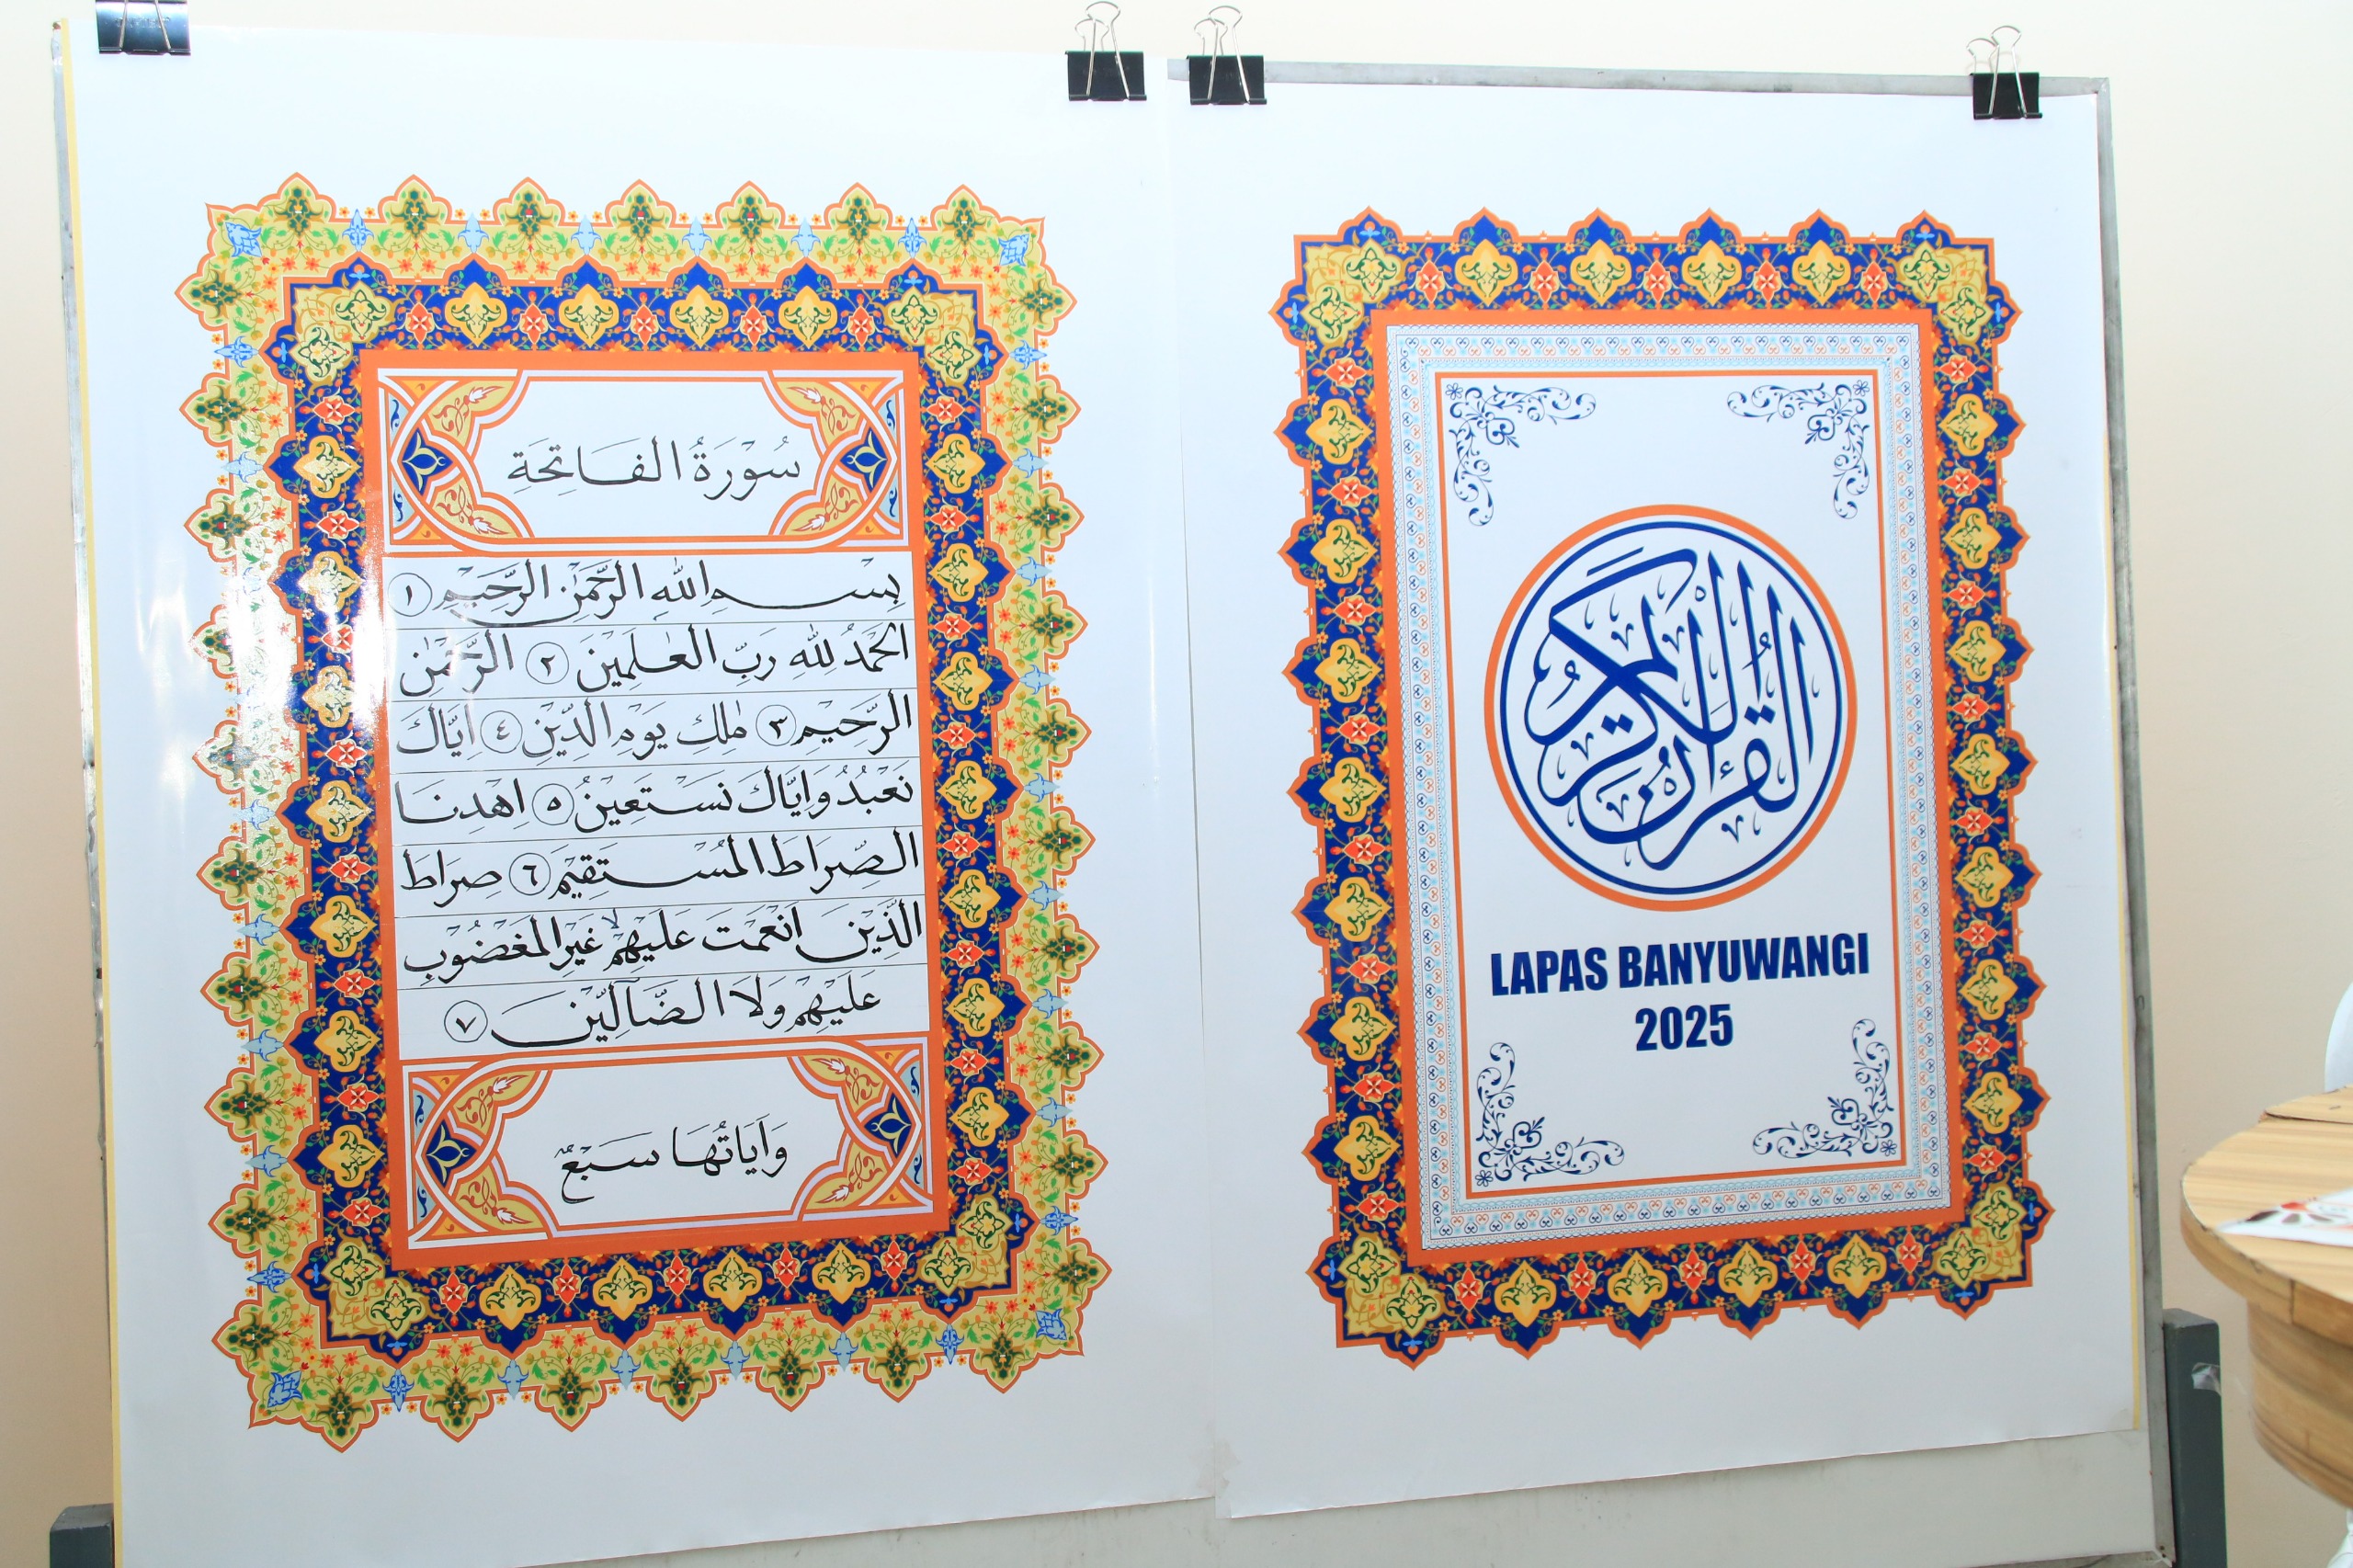 سُوْرَةُ الْفَاتِحَةِ
بِسْمِ اللّٰهِ الرَّحْمٰنِ الرَّحِيْمِ ۝١
اَلْحَمْدُ لِلّٰهِ رَبِّ الْعٰلَمِيْنَ ۝٢ الرَّحْمٰنِ
الرَّحِيْمِ ۝٣ مٰلِكِ يَوْمِ الدِّيْنِ ۝٤ اِيَّاكَ
نَعْبُدُ وَاِيَّاكَ نَسْتَعِيْنُ ۝٥ اِهْدِنَا
الصِّرَاطَ الْمُسْتَقِيْمَ ۝٦ صِرَاطَ
الَّذِيْنَ اَنْعَمْتَ عَلَيْهِمْ ۙ غَيْرِ الْمَغْضُوْبِ
عَلَيْهِمْ وَلَا الضَّاۤلِّيْنَ ۝٧
وَاٰيَاتُهَا سَبْعٌ
القُرْآنُ الْكَرِيْمُ
LAPAS BANYUWANGI
2025